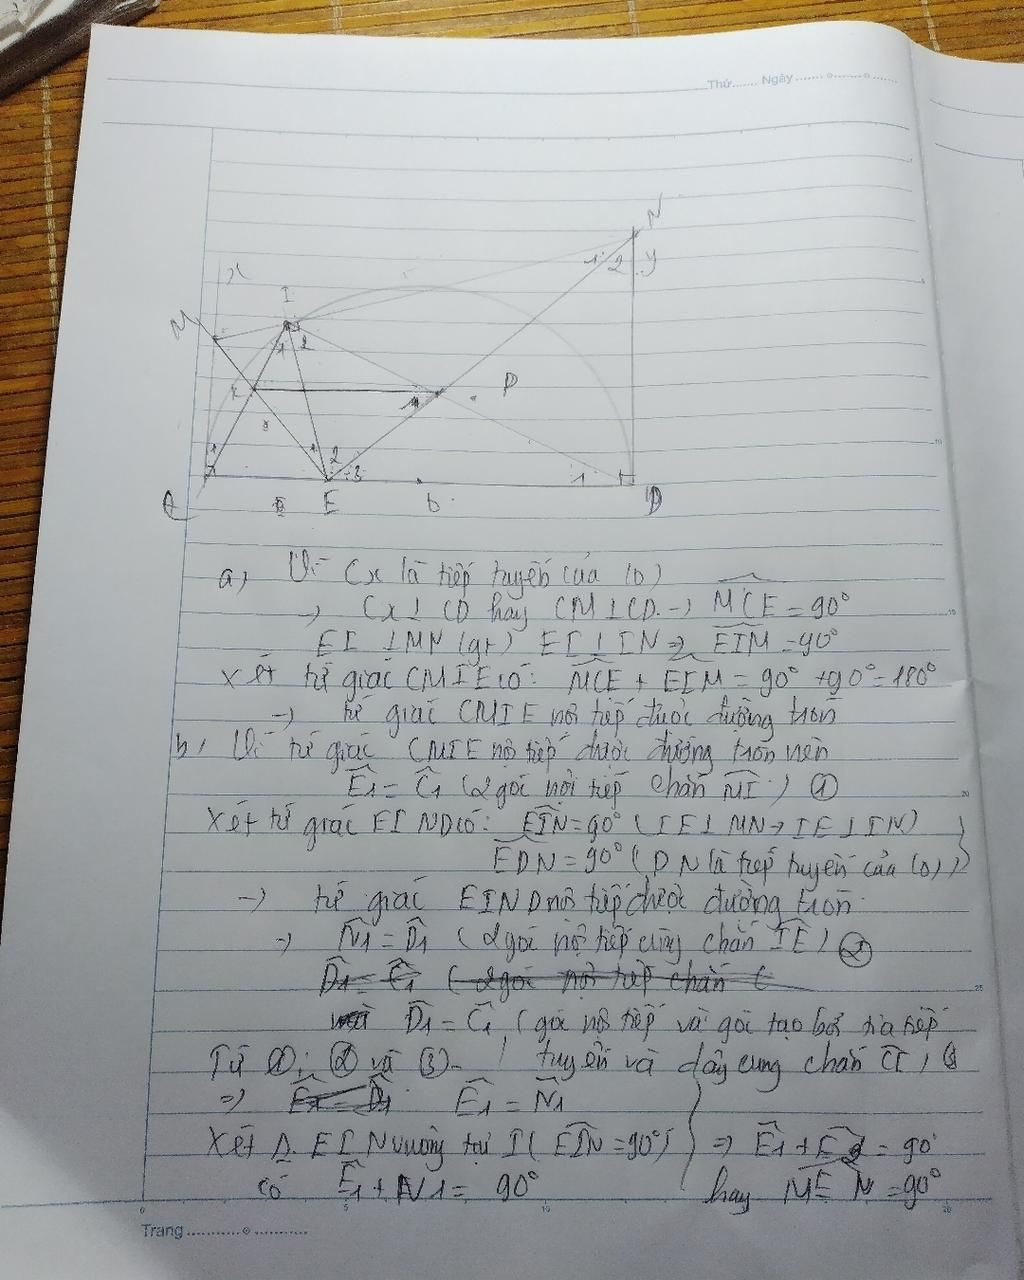 Thứ....... Ngày.......
N
1 2 y
x
I
M
1 2
K
P
1
1 2
2 3 1
C E O D
a) Vì Cx là tiếp tuyến của (O)
→ Cx ⊥ CD hay CM ⊥ CD → MCE = 90°
EI ⊥ MN (gt) EI ⊥ IN → EIM = 90°
Xét tứ giác CMIE có: MCE + EIM = 90° + 90° = 180°
→ tứ giác CMIE nội tiếp được đường tròn
b, Vì tứ giác CMIE nội tiếp được đường tròn nên
E1 = C1 (2 góc nội tiếp chắn MI) ①
Xét tứ giác EINDcó: EIN = 90° (IE ⊥ MN → IE ⊥ IN)
EDN = 90° (DN là tiếp tuyến của (O))
→ tứ giác EIND nội tiếp được đường tròn
→ N1 = D1 (2 góc nội tiếp cùng chắn IE) ②
D1 = C1 (2 góc nội tiếp chắn C
mà D1 = C1 (góc nội tiếp và góc tạo bởi tia tiếp
Từ ①; ② và (3) tuyến và dây cung chắn CI) (3
=> E1 = D1 E1 = N1
Xét Δ EIN vuông tại I (EIN = 90°) => E1 + E2 = 90°
có E2 + N1 = 90° hay MEN = 90°
Trang